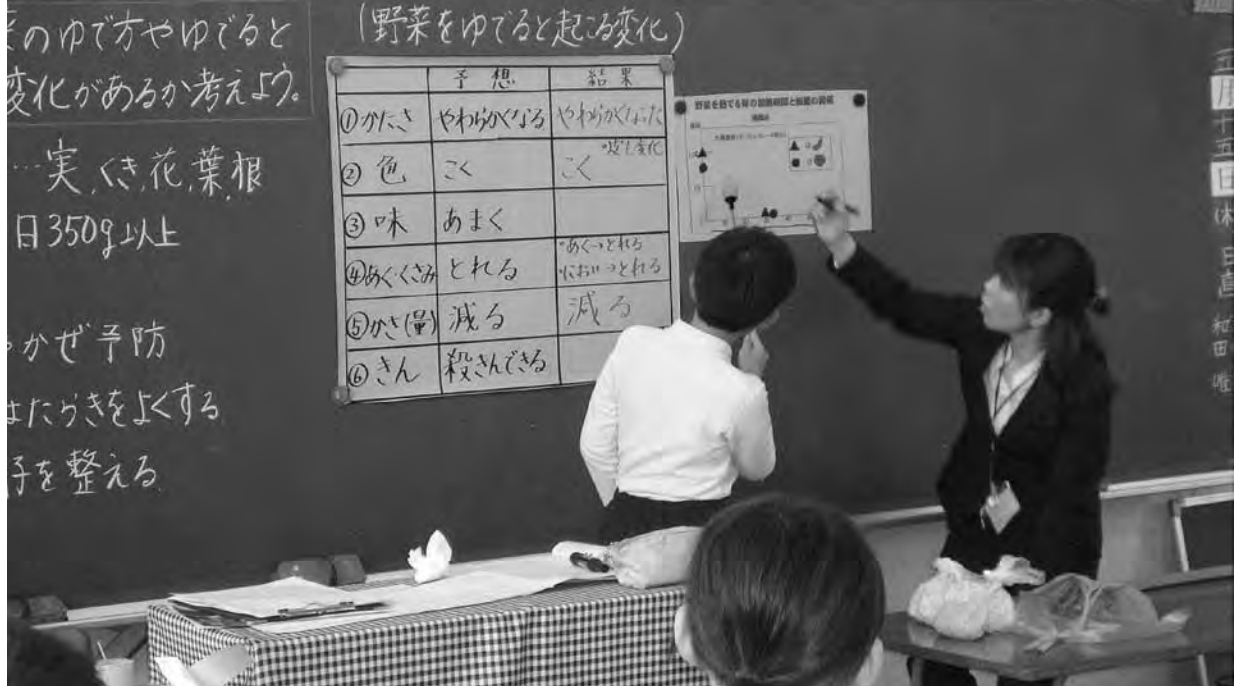 のゆで方やゆでると
変化があるか考えよう。
…実、くき、花、葉、根
日350g以上
かぜ予防
はたらきをよくする
子を整える
(野菜をゆでると起こる変化)
予想 結果
①かたさ やわらかくなる やわらかくなった
②色 こく こく
③味 あまく
④あく・くさみ とれる ・あく→とれる
・におい→とれる
⑤かさ(量) 減る 減る
⑥きん 殺きんできる
野菜を茹でる時の
月
十
五
日
日直
和田
唯